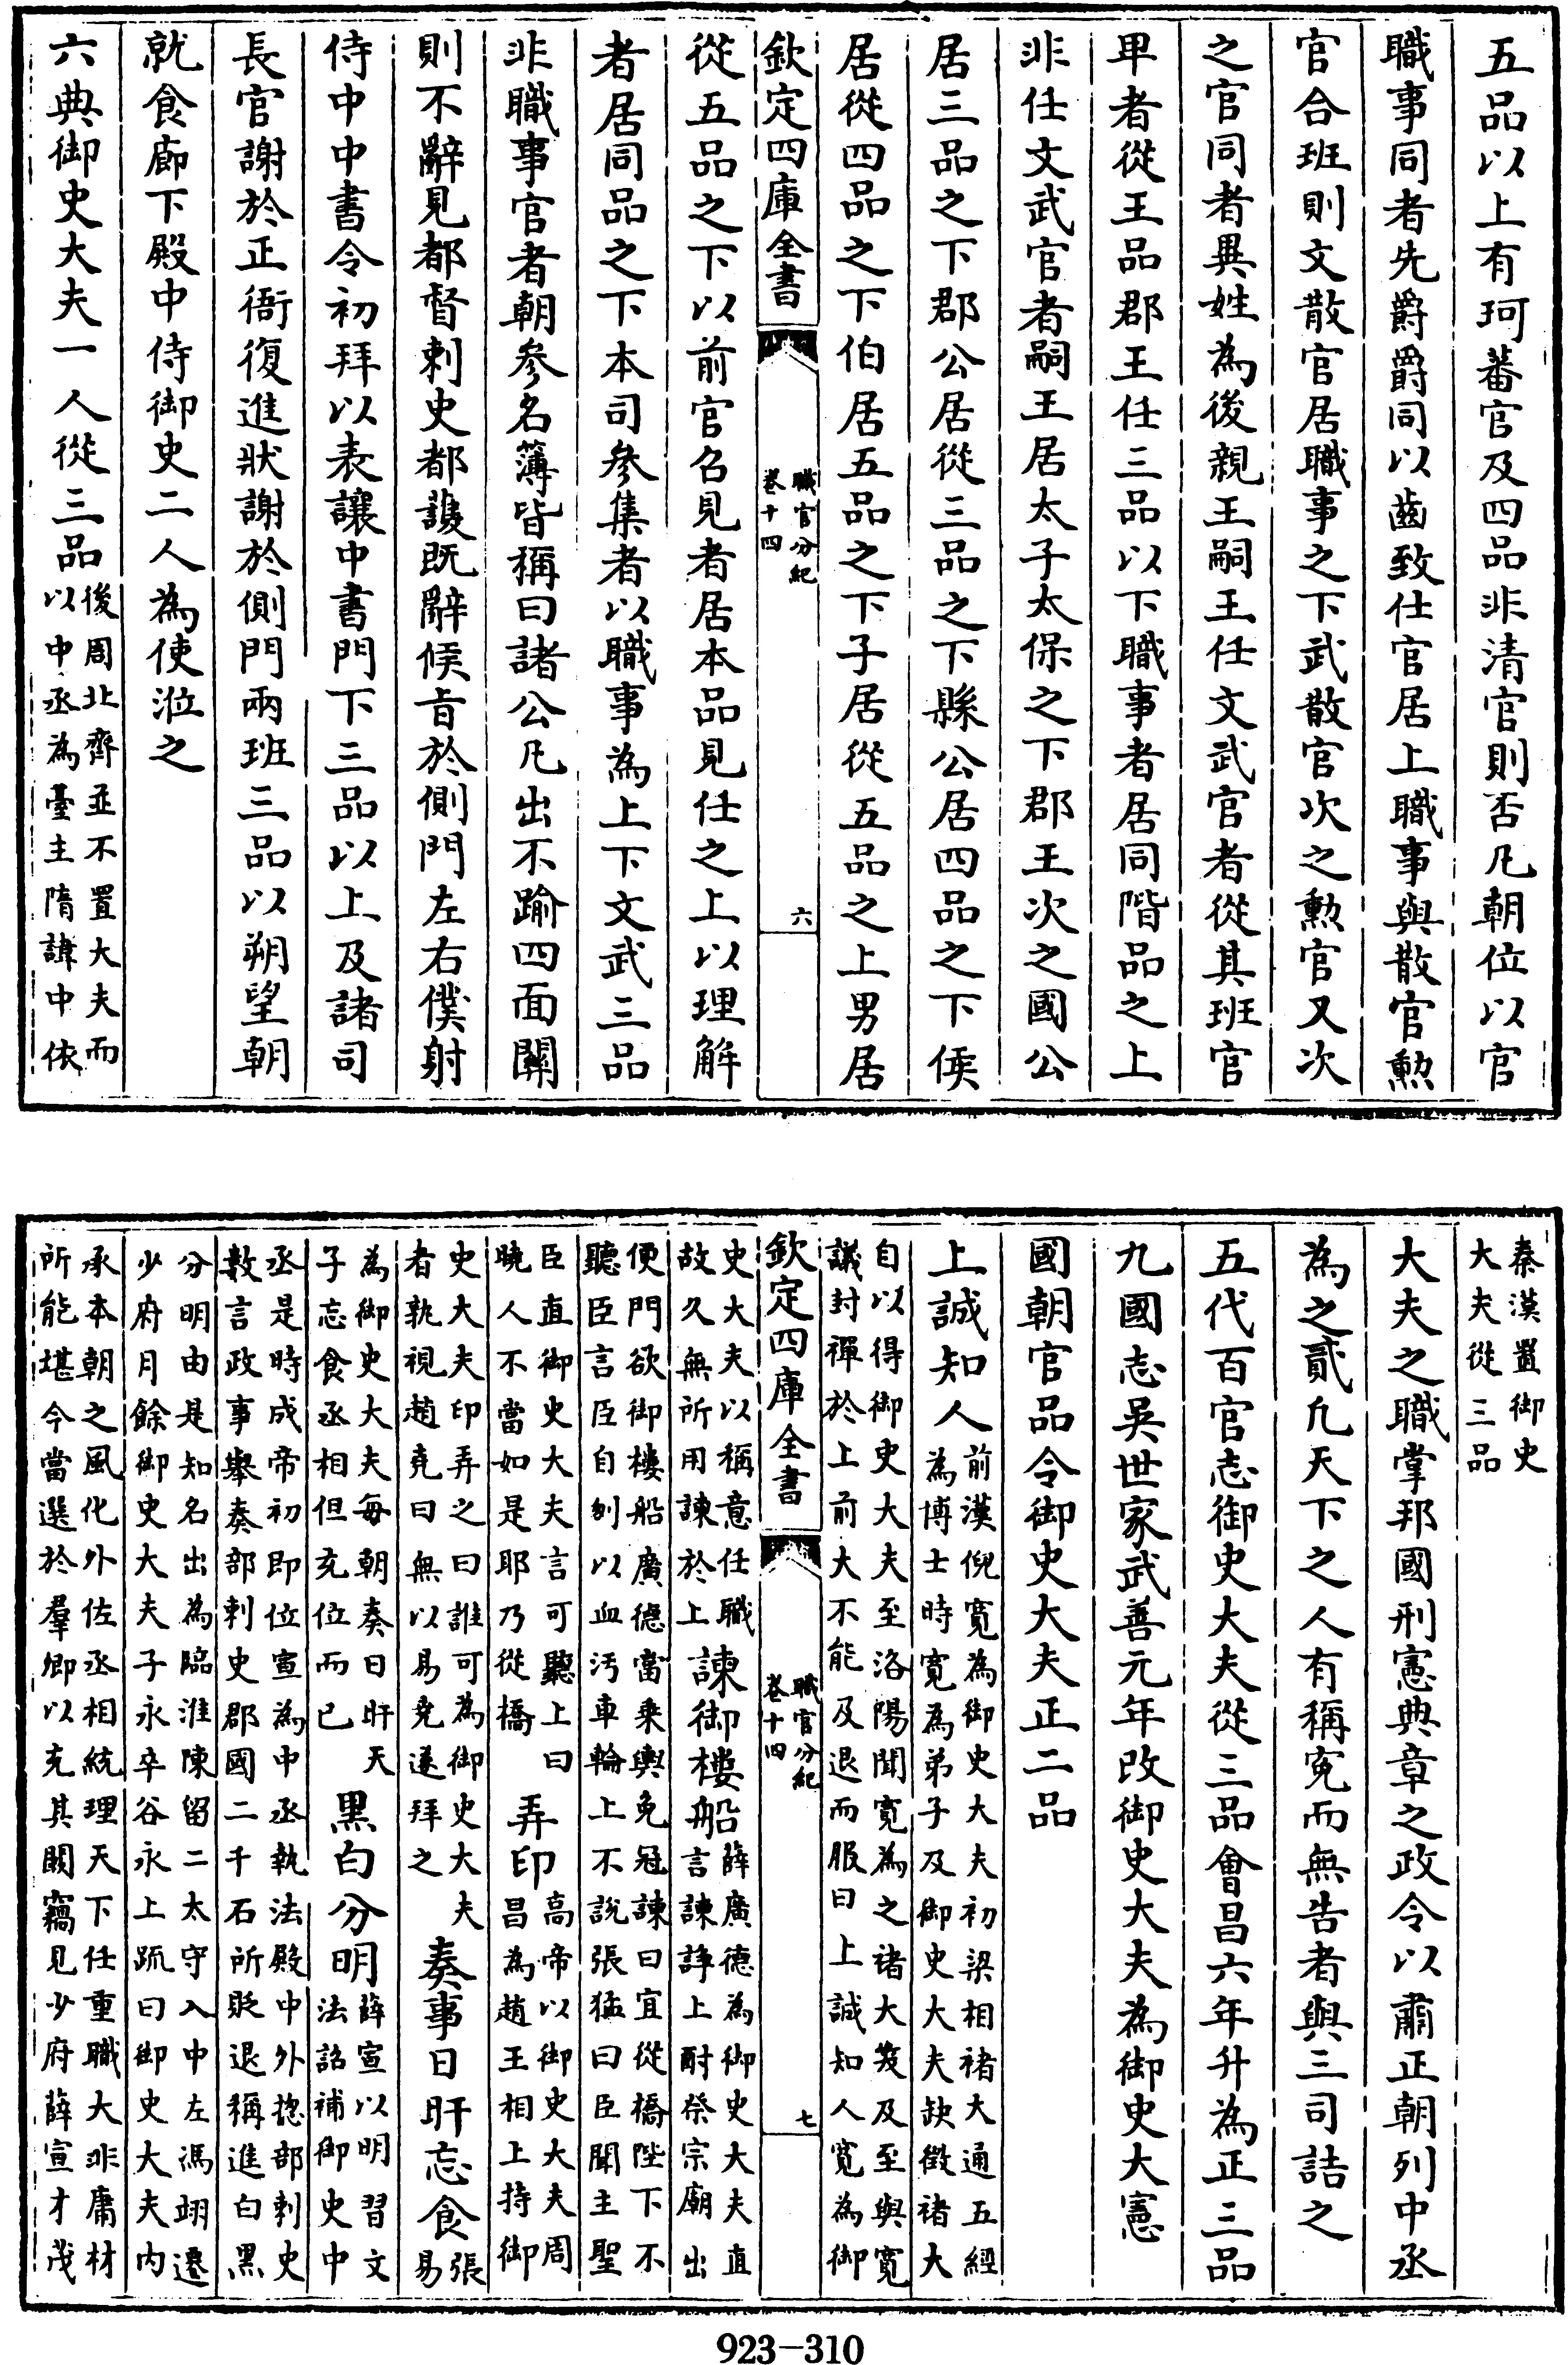 五品以上有珂蕃官及四品非清官則否凡朝位以官
職事同者先爵爵同以齒致仕官居上職事與散官勲
官合班則文散官居職事之下武散官次之勲官又次
之官同者異姓為後親王嗣王任文武官者從其班官
卑者從王品郡王任三品以下職事者居同階品之上
非任文武官者嗣王居太子太保之下郡王次之國公
居三品之下郡公居從三品之下縣公居四品之下侯
居從四品之下伯居五品之下子居從五品之上男居
欽定四庫全書
職官分紀
卷十四
六
從五品之下以前官召見者居本品見任之上以理解
者居同品之下本司參集者以職事為上下文武三品
非職事官者朝參名簿皆稱曰諸公凡出不踰四面關
則不辭見都督刺史都護既辭候旨於側門左右僕射
侍中中書令初拜以表讓中書門下三品以上及諸司
長官謝於正衙復進狀謝於側門兩班三品以朔望朝
就食廊下殿中侍御史二人為使涖之
六典御史大夫一人從三品後周北齊並不置大夫而
以中丞為臺主隋諱中依
秦漢置御史
大夫從三品
大夫之職掌邦國刑憲典章之政令以肅正朝列中丞
為之貳凢天下之人有稱寃而無告者與三司詰之
五代百官志御史大夫從三品會昌六年升為正三品
九國志吳世家武善元年改御史大夫為御史大憲
國朝官品令御史大夫正二品
上誠知人前漢倪寛為御史大夫初梁相褚大通五經
為博士時寛為弟子及御史大夫缺徴褚大
自以得御史大夫至洛陽聞寛為之褚大笑及至與寛
議封禪於上前大不能及退而服曰上誠知人寛為御
欽定四庫全書
職官分紀
卷十四
七
史大夫以稱意任職
故久無所用諫於上諫御樓船薛廣德為御史大夫直
言諫諍上酎祭宗廟出
便門欲御樓船廣德當乘輿免冠諫曰宜從橋陛下不
聽臣言臣自刎以血汚車輪上不說張猛曰臣聞主聖
臣直御史大夫言可聽上曰
曉人不當如是耶乃從橋弄印高帝以御史大夫周
昌為趙王相上持御
史大夫印弄之曰誰可為御史大夫
者孰視趙堯曰無以易堯遂拜之奏事日旰忘食張
易
為御史大夫每朝奏日旰天
子忘食丞相但充位而已黒白分明薛宣以明習文
法詔補御史中
丞是時成帝初即位宣為中丞執法殿中外揔部刺史
數言政事舉奏部刺史郡國二千石所貶退稱進白黒
分明由是知名出為臨淮陳留二太守入中左馮翊遷
少府月餘御史大夫子永卒谷永上疏曰御史大夫内
承本朝之風化外佐丞相統理天下任重職大非庸材
所能堪今當選於羣卿以充其闕竊見少府薛宣才茂
923-310